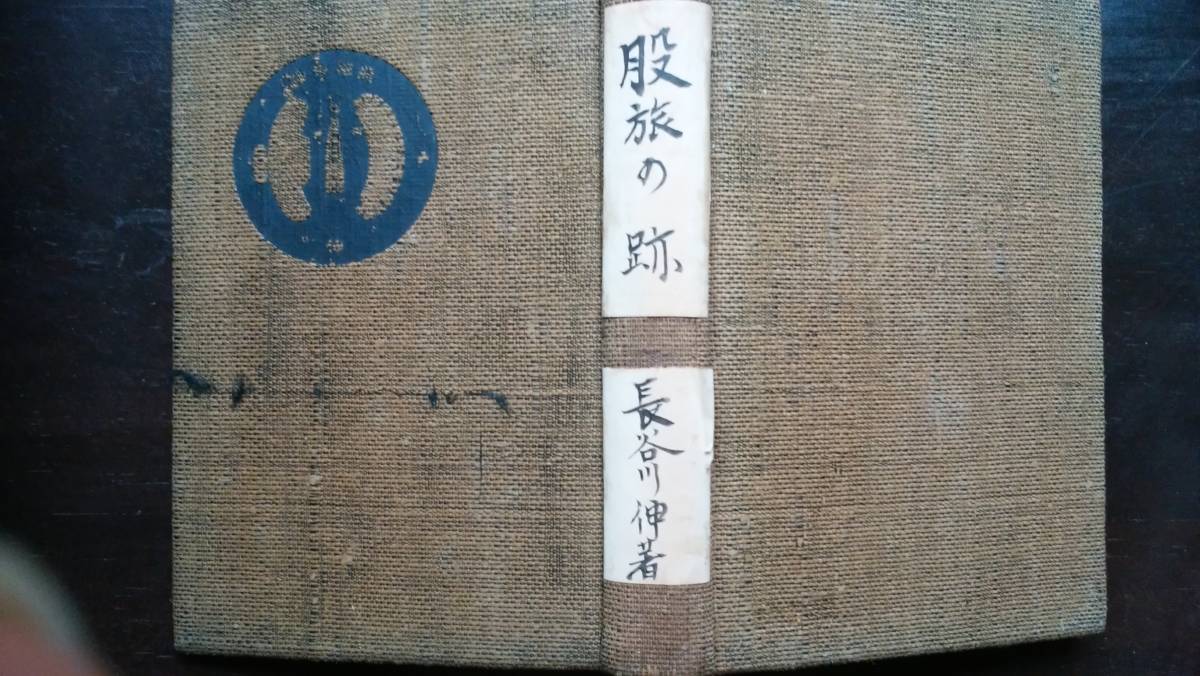 股旅の跡
長谷川伸著